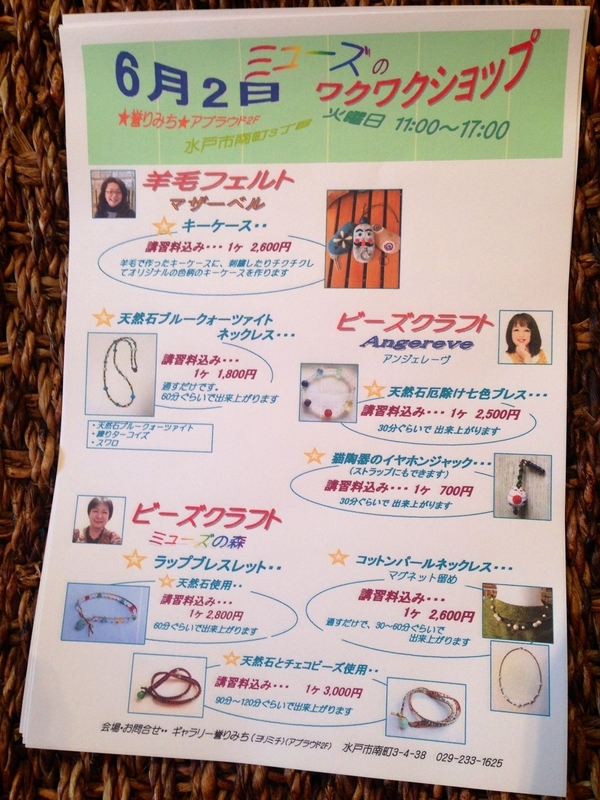 6月2日 ミューズの
ワクワクショップ
★誉りみち★アプラウド2F 火曜日 11:00～17:00
水戸市南町3丁目
羊毛フェルト
マザーベル
☆ キーケース・・
講習料込み・・・1ヶ 2,600円
羊毛で作ったキーケースに、刺繍したりチクチクし
てオリジナルの色柄のキーケースを作ります
☆ 天然石ブルークォーツァイト
ネックレス・・・
講習料込み・・・
1ヶ 1,800円
通すだけです。
60分ぐらいで出来上がります
・天然石ブルークォーツァイト
・練りターコイズ
・スワロ
ビーズクラフト
Angereve
アンジェレーヴ
☆ 天然石厄除け七色ブレス・・・
講習料込み・・・1ヶ 2,500円
30分ぐらいで 出来上がります
☆ 猫陶器のイヤホンジャック・・・
(ストラップにもできます)
講習料込み・・・1ヶ 700円
30分ぐらいで 出来上がります
ビーズクラフト
ミューズの森
☆ ラップブレスレット・・
☆ 天然石使用・・
講習料込み・・・
1ヶ2,800円
60分ぐらいで出来上がります
☆ コットンパールネックレス・・・
マグネット留め
講習料込み・・・
1ヶ 2,600円
通すだけで、30～60分ぐらいで
出来上がります
☆ 天然石とチェコビーズ使用・・
講習料込み・・・ 1ヶ3,000円
90分～120分ぐらいで出来上がります
会場・お問合せ・・ ギャラリー誉りみち(ヨリミチ)(アプラウド2F) 水戸市南町3-4-38 029-233-1625